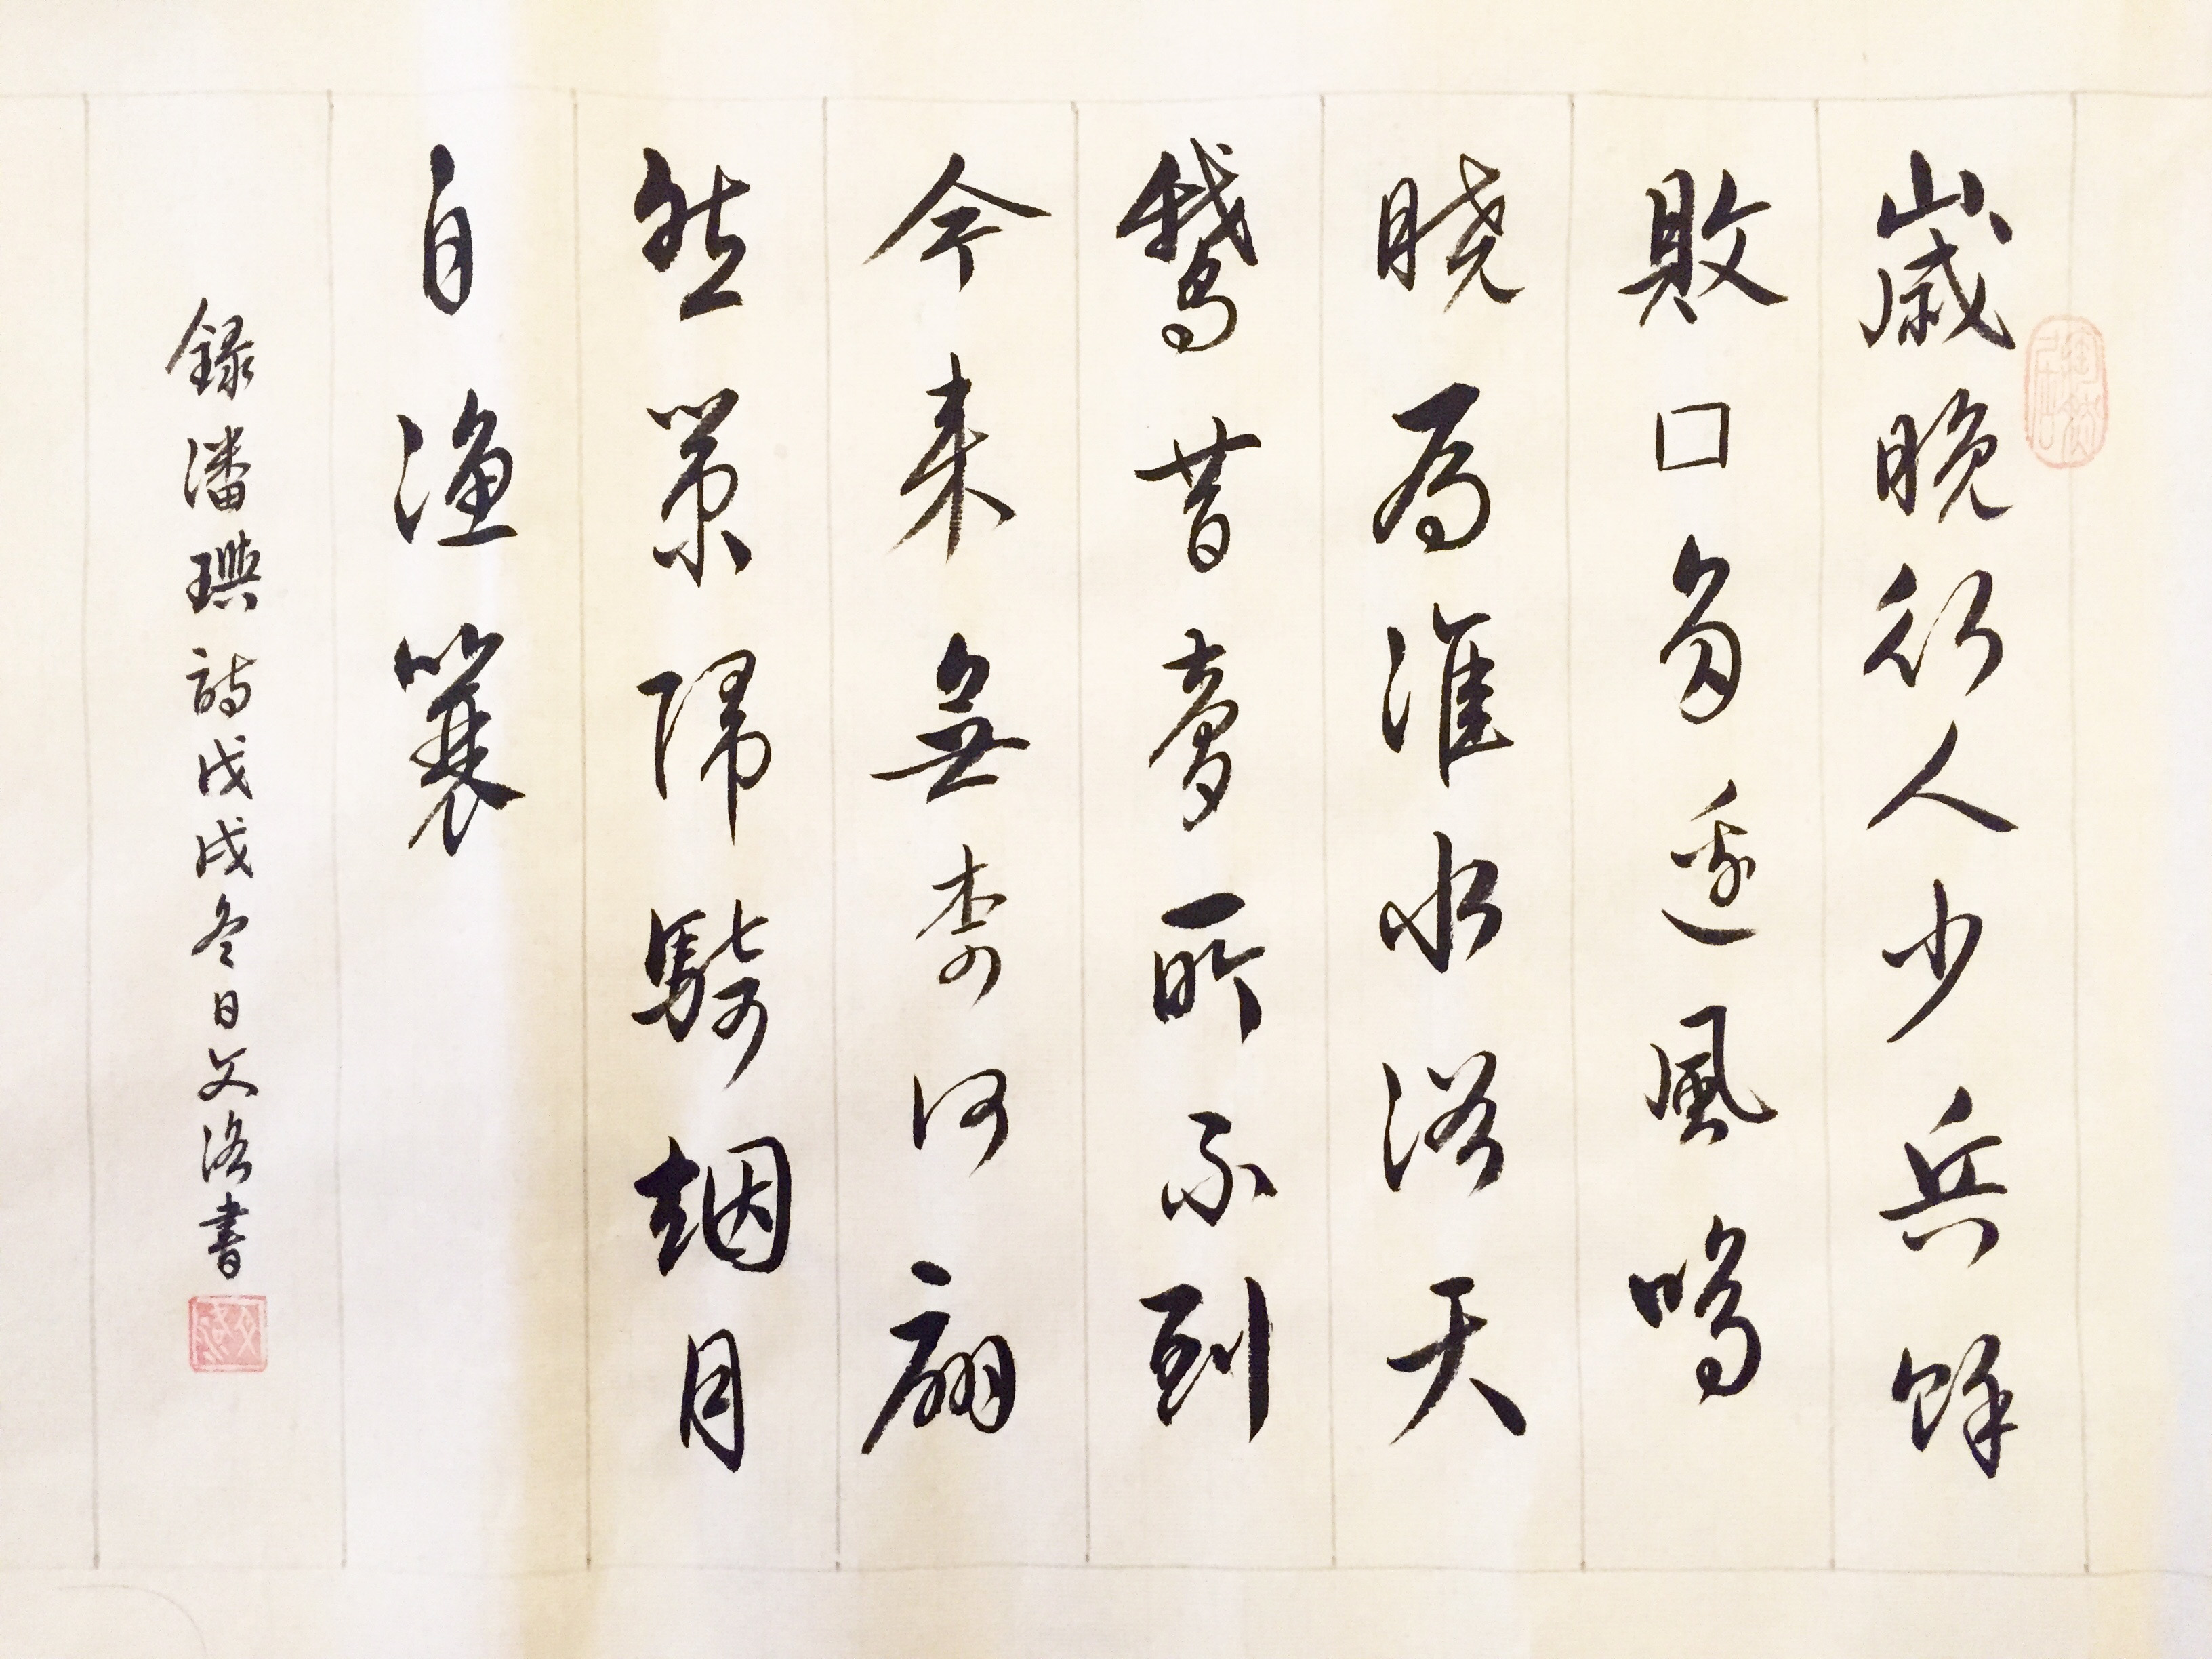 歲晚行人少兵餘
敗□多邊風鳴
曉角淮水浴天
鵝昔夢所不到
今來無奈何翩
然策歸騎烟月
自漁蓑
錄潘璵詩戊戌冬日文洛書